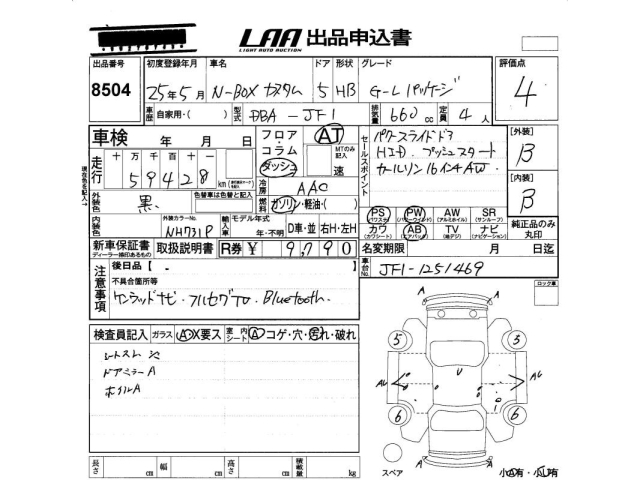 LAA 出品申込書
LIGHT AUTO AUCTION
出品番号 初度登録年月 車名 ドア 形状 グレード 評価点
8504 25年5月 N-BOX カスタム 5 HB G-Lパッケージ 4
車歴 自家用・( ) 型式 DBA-JF1 排気量 660cc 定員 4人
車検 年 月 日 フロア・コラム・ダッシュ AT MTのみ記入 速
セールスポイント パワースライドドア
HID プッシュスタート
オールリンク16インチAW
[外装] B
[内装] B
走行 十 万 千 百 十
59428km
冷房 AAC
燃料 ガソリン・軽油・( )
外装色 黒 色替車は色替と記入
内装色 外装カラーNo. NH731P
輸入車 モデル年式 年・不明 D車・並 右H・左H
PS PW AW SR
(パワステ) (パワーウインド) (アルミホイル) (サンルーフ)
カワ AB TV ナビ
(カワシート) (エアバック) (純デジ) (ナビゲーション)
純正品のみ丸印
新車保証書 取扱説明書 R券 ¥ 9,790
ディーラー捺印あるもの
名変期限 月 日迄
車台No. JF1-1251469
ロック車
注意事項 後日品【
不具合箇所等
ケンウッドナビ・フルセグTV・Bluetooth.
検査員記入 ガラス A・X要ス 室内シート A コゲ・穴・汚れ・破れ
シートスレ
ドアミラーA
ホイルA
5 3
AU AU
6 6
スペア
長さ cm 幅 cm 高さ cm 積載量 kg